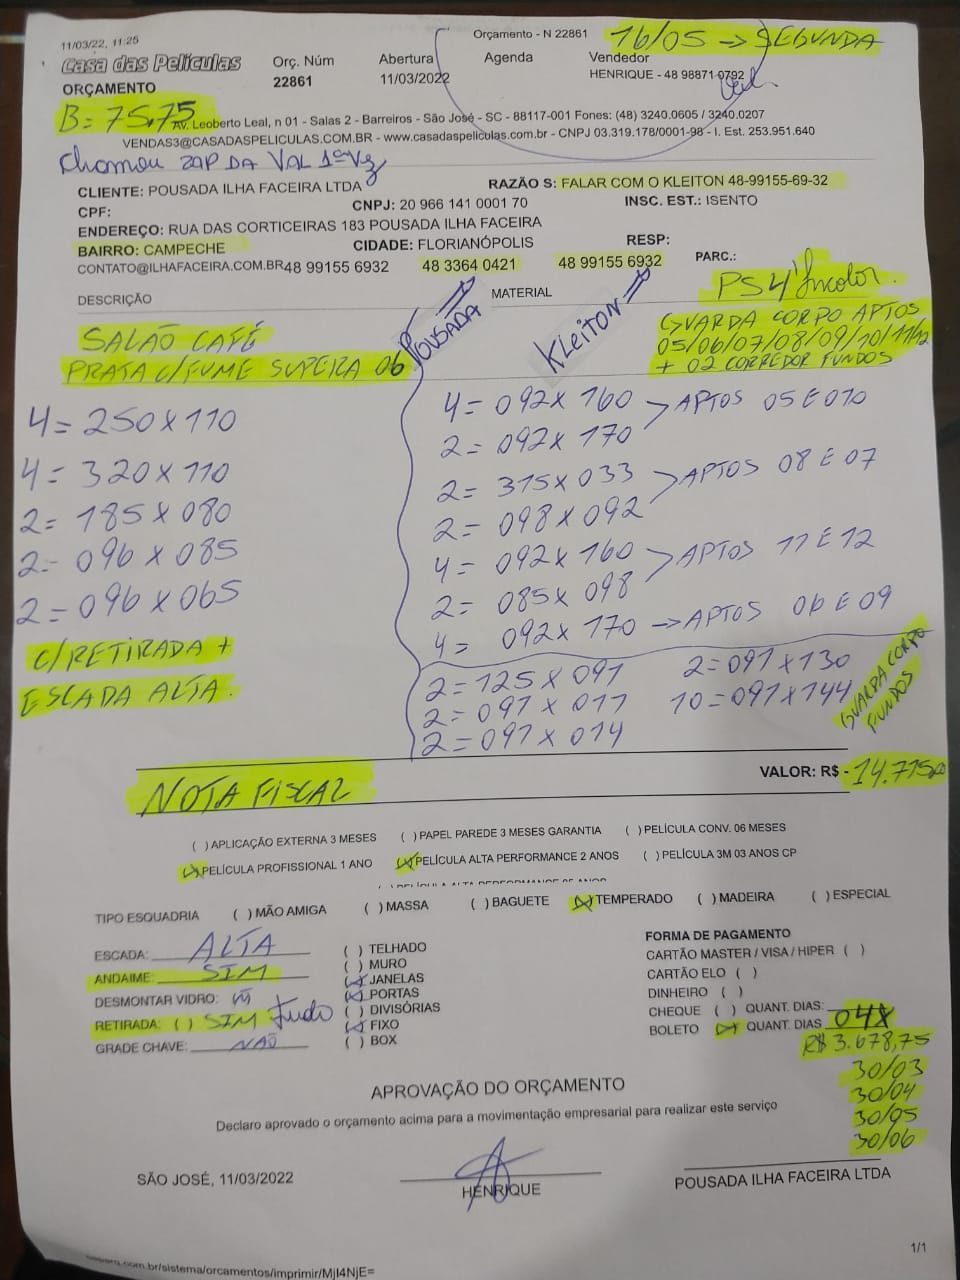 11/03/22, 11:25
Orçamento - N 22861
16/05 → SEGUNDA
Casa das Películas
Orç. Núm
Abertura
Agenda
Vendedor
ORÇAMENTO
22861
11/03/2022
HENRIQUE - 48 98871 0792
B = 75,75
Av. Leoberto Leal, n 01 - Salas 2 - Barreiros - São José - SC - 88117-001 Fones: (48) 3240.0605 / 3240.0207
VENDAS3@CASADASPELICULAS.COM.BR - www.casadaspeliculas.com.br - CNPJ 03.319.178/0001-98 - I. Est. 253.951.640
Chamou ZAP DA VAL 1ª Vz
CLIENTE: POUSADA ILHA FACEIRA LTDA
RAZÃO S: FALAR COM O KLEITON 48-99155-69-32
CPF:
CNPJ: 20 966 141 0001 70
INSC. EST.: ISENTO
ENDEREÇO: RUA DAS CORTICEIRAS 183 POUSADA ILHA FACEIRA
BAIRRO: CAMPECHE
CIDADE: FLORIANÓPOLIS
RESP:
CONTATO@ILHAFACEIRA.COM.BR
48 99155 6932
48 3364 0421
48 99155 6932
PARC.:
DESCRIÇÃO
MATERIAL
PS4 Incolor
POUSADA
KLEITON
SALÃO CAFÉ
PRATA C/FUME SUPEIRA 06
GUARDA CORPO APTOS
05/06/07/08/09/10/11/12
+ 02 CORREDOR FUNDOS
4 = 250 X 110
4 = 320 X 110
2 = 185 X 080
2 = 096 X 085
2 = 096 X 065
C/RETIRADA +
ESCADA ALTA.
4 = 092 X 160 > APTOS 05 E 010
2 = 092 X 170
2 = 315 X 033 > APTOS 08 E 07
2 = 098 X 092
4 = 092 X 160 > APTOS 11 E 12
2 = 085 X 098
4 = 092 X 170 → APTOS 06 E 09
2 = 125 X 091
2 = 091 X 130
2 = 091 X 017
10 = 091 X 144
2 = 091 X 014
GUARDA CORPO
FUNDOS
NOTA FISCAL
VALOR: R$ - 14.715,00
( ) APLICAÇÃO EXTERNA 3 MESES
( ) PAPEL PAREDE 3 MESES GARANTIA
( ) PELÍCULA CONV. 06 MESES
(X) PELÍCULA PROFISSIONAL 1 ANO
(X) PELÍCULA ALTA PERFORMANCE 2 ANOS
( ) PELÍCULA 3M 03 ANOS CP
TIPO ESQUADRIA
( ) MÃO AMIGA
( ) MASSA
( ) BAGUETE
(X) TEMPERADO
( ) MADEIRA
( ) ESPECIAL
ESCADA: ALTA
ANDAIME: SIM
DESMONTAR VIDRO:
RETIRADA: ( ) SIM Tudo
GRADE CHAVE: NÃO
( ) TELHADO
( ) MURO
(X) JANELAS
(X) PORTAS
( ) DIVISÓRIAS
(X) FIXO
( ) BOX
FORMA DE PAGAMENTO
CARTÃO MASTER / VISA / HIPER ( )
CARTÃO ELO ( )
DINHEIRO ( )
CHEQUE ( ) QUANT. DIAS:
BOLETO (X) QUANT. DIAS 04X
R$ 3.678,75
30/03
30/04
30/05
30/06
APROVAÇÃO DO ORÇAMENTO
Declaro aprovado o orçamento acima para a movimentação empresarial para realizar este serviço
SÃO JOSÉ, 11/03/2022
HENRIQUE
POUSADA ILHA FACEIRA LTDA
1/1
.com.br/sistema/orcamentos/imprimir/MjI4NjE=